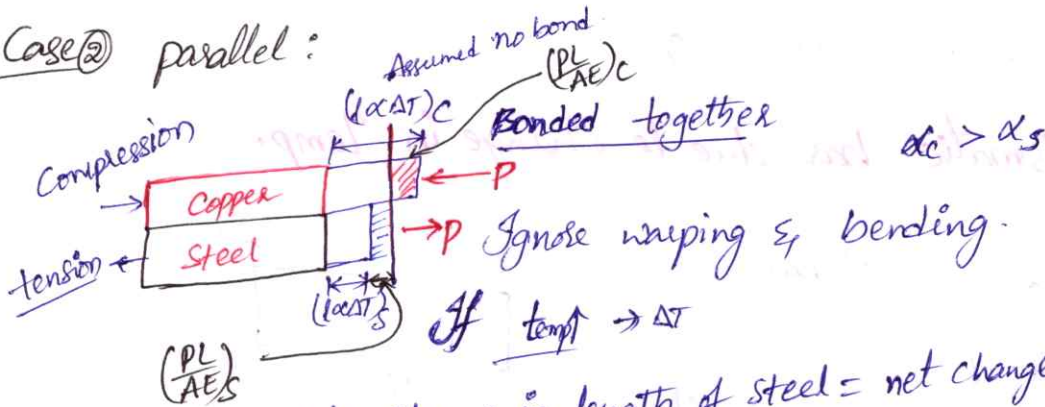 Case② parallel :
Assumed no bond
(lαΔT)c
(PL/AE)c
Bonded together
αc > αs
Compression
Copper
← P
Steel
→ P
Ignore warping & bending.
tension
(lαΔT)s
If temp↑ → ΔT
(PL/AE)s
in length of steel = net change